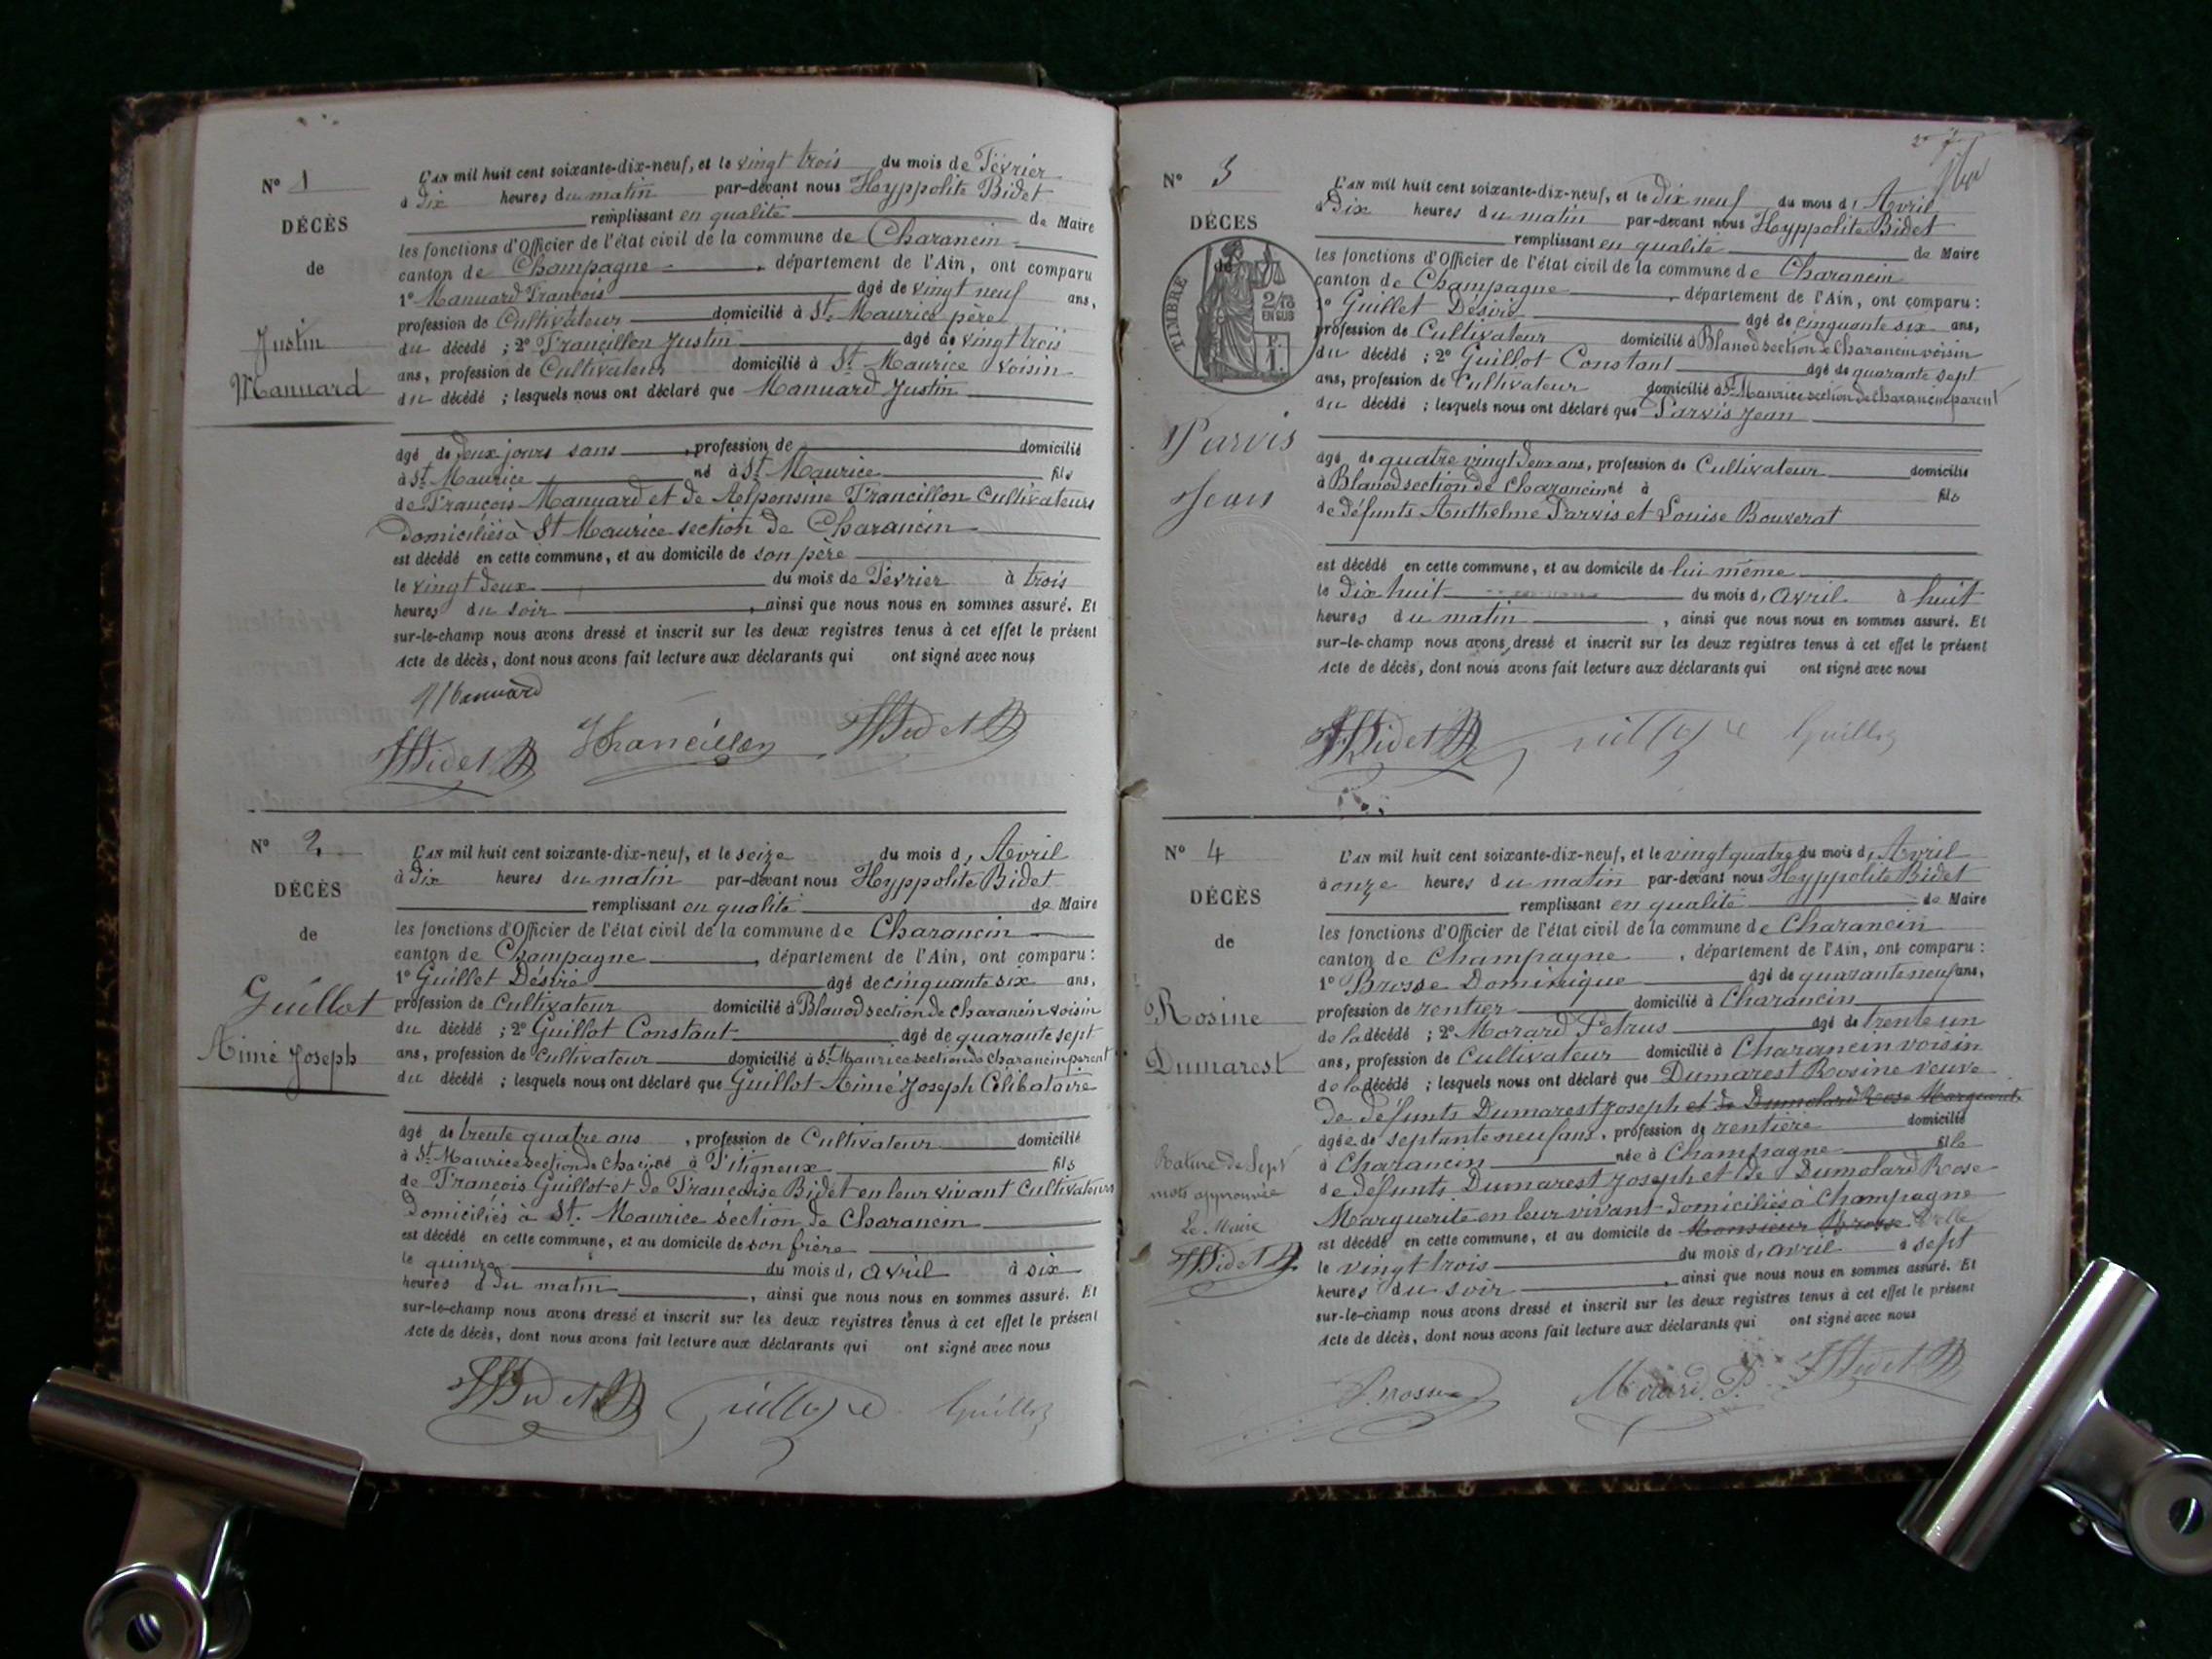 N° 1
DÉCÈS
de
Justin
Manuard
L'AN mil huit cent soixante-dix-neuf, et le vingt trois du mois de Février
à Dix heures du matin par-devant nous Hyppolite Bidet
remplissant en qualité de Maire
les fonctions d'Officier de l'état civil de la commune de Charancin
canton de Champagne, département de l'Ain, ont comparu
1° Manuard François âgé de vingt neuf ans,
profession de Cultivateur domicilié à St Maurice père
du décédé ; 2° Francillon Justin âgé de vingt trois
ans, profession de Cultivateur domicilié à St Maurice voisin
du décédé ; lesquels nous ont déclaré que Manuard Justin
âgé de deux jours sans, profession de domicilié
à St Maurice né à St Maurice fils
de François Manuard et de Alponsine Francillon Cultivateurs
Domiciliés à St Maurice section de Charancin
est décédé en cette commune, et au domicile de son père
le vingt deux du mois de Février à trois
heures du soir, ainsi que nous nous en sommes assuré. Et
sur-le-champ nous avons dressé et inscrit sur les deux registres tenus à cet effet le présent
Acte de décès, dont nous avons fait lecture aux déclarants qui ont signé avec nous
Manuard
HBidet Francillon HBidet
N° 2
DÉCÈS
de
Guillot
Aimé Joseph
L'AN mil huit cent soixante-dix-neuf, et le seize du mois d' Avril
à Dix heures du matin par-devant nous Hyppolite Bidet
remplissant en qualité de Maire
les fonctions d'Officier de l'état civil de la commune de Charancin
canton de Champagne, département de l'Ain, ont comparu :
1° Guillet Désiré âgé de cinquante six ans,
profession de Cultivateur domicilié à Blanod section de Charancin voisin
du décédé ; 2° Guillot Constant âgé de quarante sept
ans, profession de Cultivateur domicilié à St Maurice section de Charancin parent
du décédé ; lesquels nous ont déclaré que Guillot Aimé Joseph Célibataire
âgé de trente quatre ans, profession de Cultivateur domicilié
à St Maurice section de né à Fitigneux fils
de François Guillot et de Françoise Bidet en leur vivant Cultivateurs
Domiciliés à St. Maurice section de Charancin
est décédé en cette commune, et au domicile de son frère
le quinze du mois d' Avril à six
heures d du matin, ainsi que nous nous en sommes assuré. Et
sur-le-champ nous avons dressé et inscrit sur les deux registres tenus à cet effet le présent
Acte de décès, dont nous avons fait lecture aux déclarants qui ont signé avec nous
HBidet Guillot
N° 3
DÉCÈS
de
TIMBRE
2/10 EN SUS
F. 1.
Parvis
Jean
L'AN mil huit cent soixante-dix-neuf, et le Dix neuf du mois d' Avril
à Dix heures du matin par-devant nous Hyppolite Bidet
remplissant en qualité de Maire
les fonctions d'Officier de l'état civil de la commune de Charancin
canton de Champagne, département de l'Ain, ont comparu :
1° Guillet Désiré âgé de cinquante six ans,
profession de Cultivateur domicilié à Blanod section de Charancin voisin
du décédé ; 2° Guillot Constant âgé de quarante sept
ans, profession de Cultivateur domicilié à St Maurice section de Charancin parent
du décédé ; lesquels nous ont déclaré que Parvis Jean
âgé de quatre vingt deux ans, profession de Cultivateur domicilié
à Blanod section de Charancin né à fils
de défunts Anthelme Parvis et Louise Bouverat
est décédé en cette commune, et au domicile de lui même
le Dix huit du mois d' Avril à huit
heures du matin, ainsi que nous nous en sommes assuré. Et
sur-le-champ nous avons dressé et inscrit sur les deux registres tenus à cet effet le présent
Acte de décès, dont nous avons fait lecture aux déclarants qui ont signé avec nous
HBidet Guillot
N° 4
DÉCÈS
de
Rosine
Dumarest
Rature de Sept
mots approuvée
Le Maire
HBidet
L'AN mil huit cent soixante-dix-neuf, et le vingt quatre du mois d' Avril
à onze heures du matin par-devant nous Hyppolite Bidet
remplissant en qualité de Maire
les fonctions d'Officier de l'état civil de la commune de Charancin
canton de Champagne, département de l'Ain, ont comparu :
1° Brosse Dominique âgé de quarante neuf ans,
profession de rentier domicilié à Charancin
de la décédé ; 2° Morard Petrus âgé de trente un
ans, profession de Cultivateur domicilié à Charancin voisin
de la décédé ; lesquels nous ont déclaré que Dumarest Rosine veuve
de défunts Dumarest Joseph et de Dumolard Rose Marguerite
âgée de septante neuf ans, profession de rentière domicilié
à Charancin née à Champagne fille
de défunts Dumarest Joseph et de Dumolard Rose
Marguerite en leur vivant domiciliés à Champagne
est décédé en cette commune, et au domicile de Monsieur Brosse
le vingt trois du mois d' avril à sept
heures du soir, ainsi que nous nous en sommes assuré. Et
sur-le-champ nous avons dressé et inscrit sur les deux registres tenus à cet effet le présent
Acte de décès, dont nous avons fait lecture aux déclarants qui ont signé avec nous
Brosse Morard P. HBidet